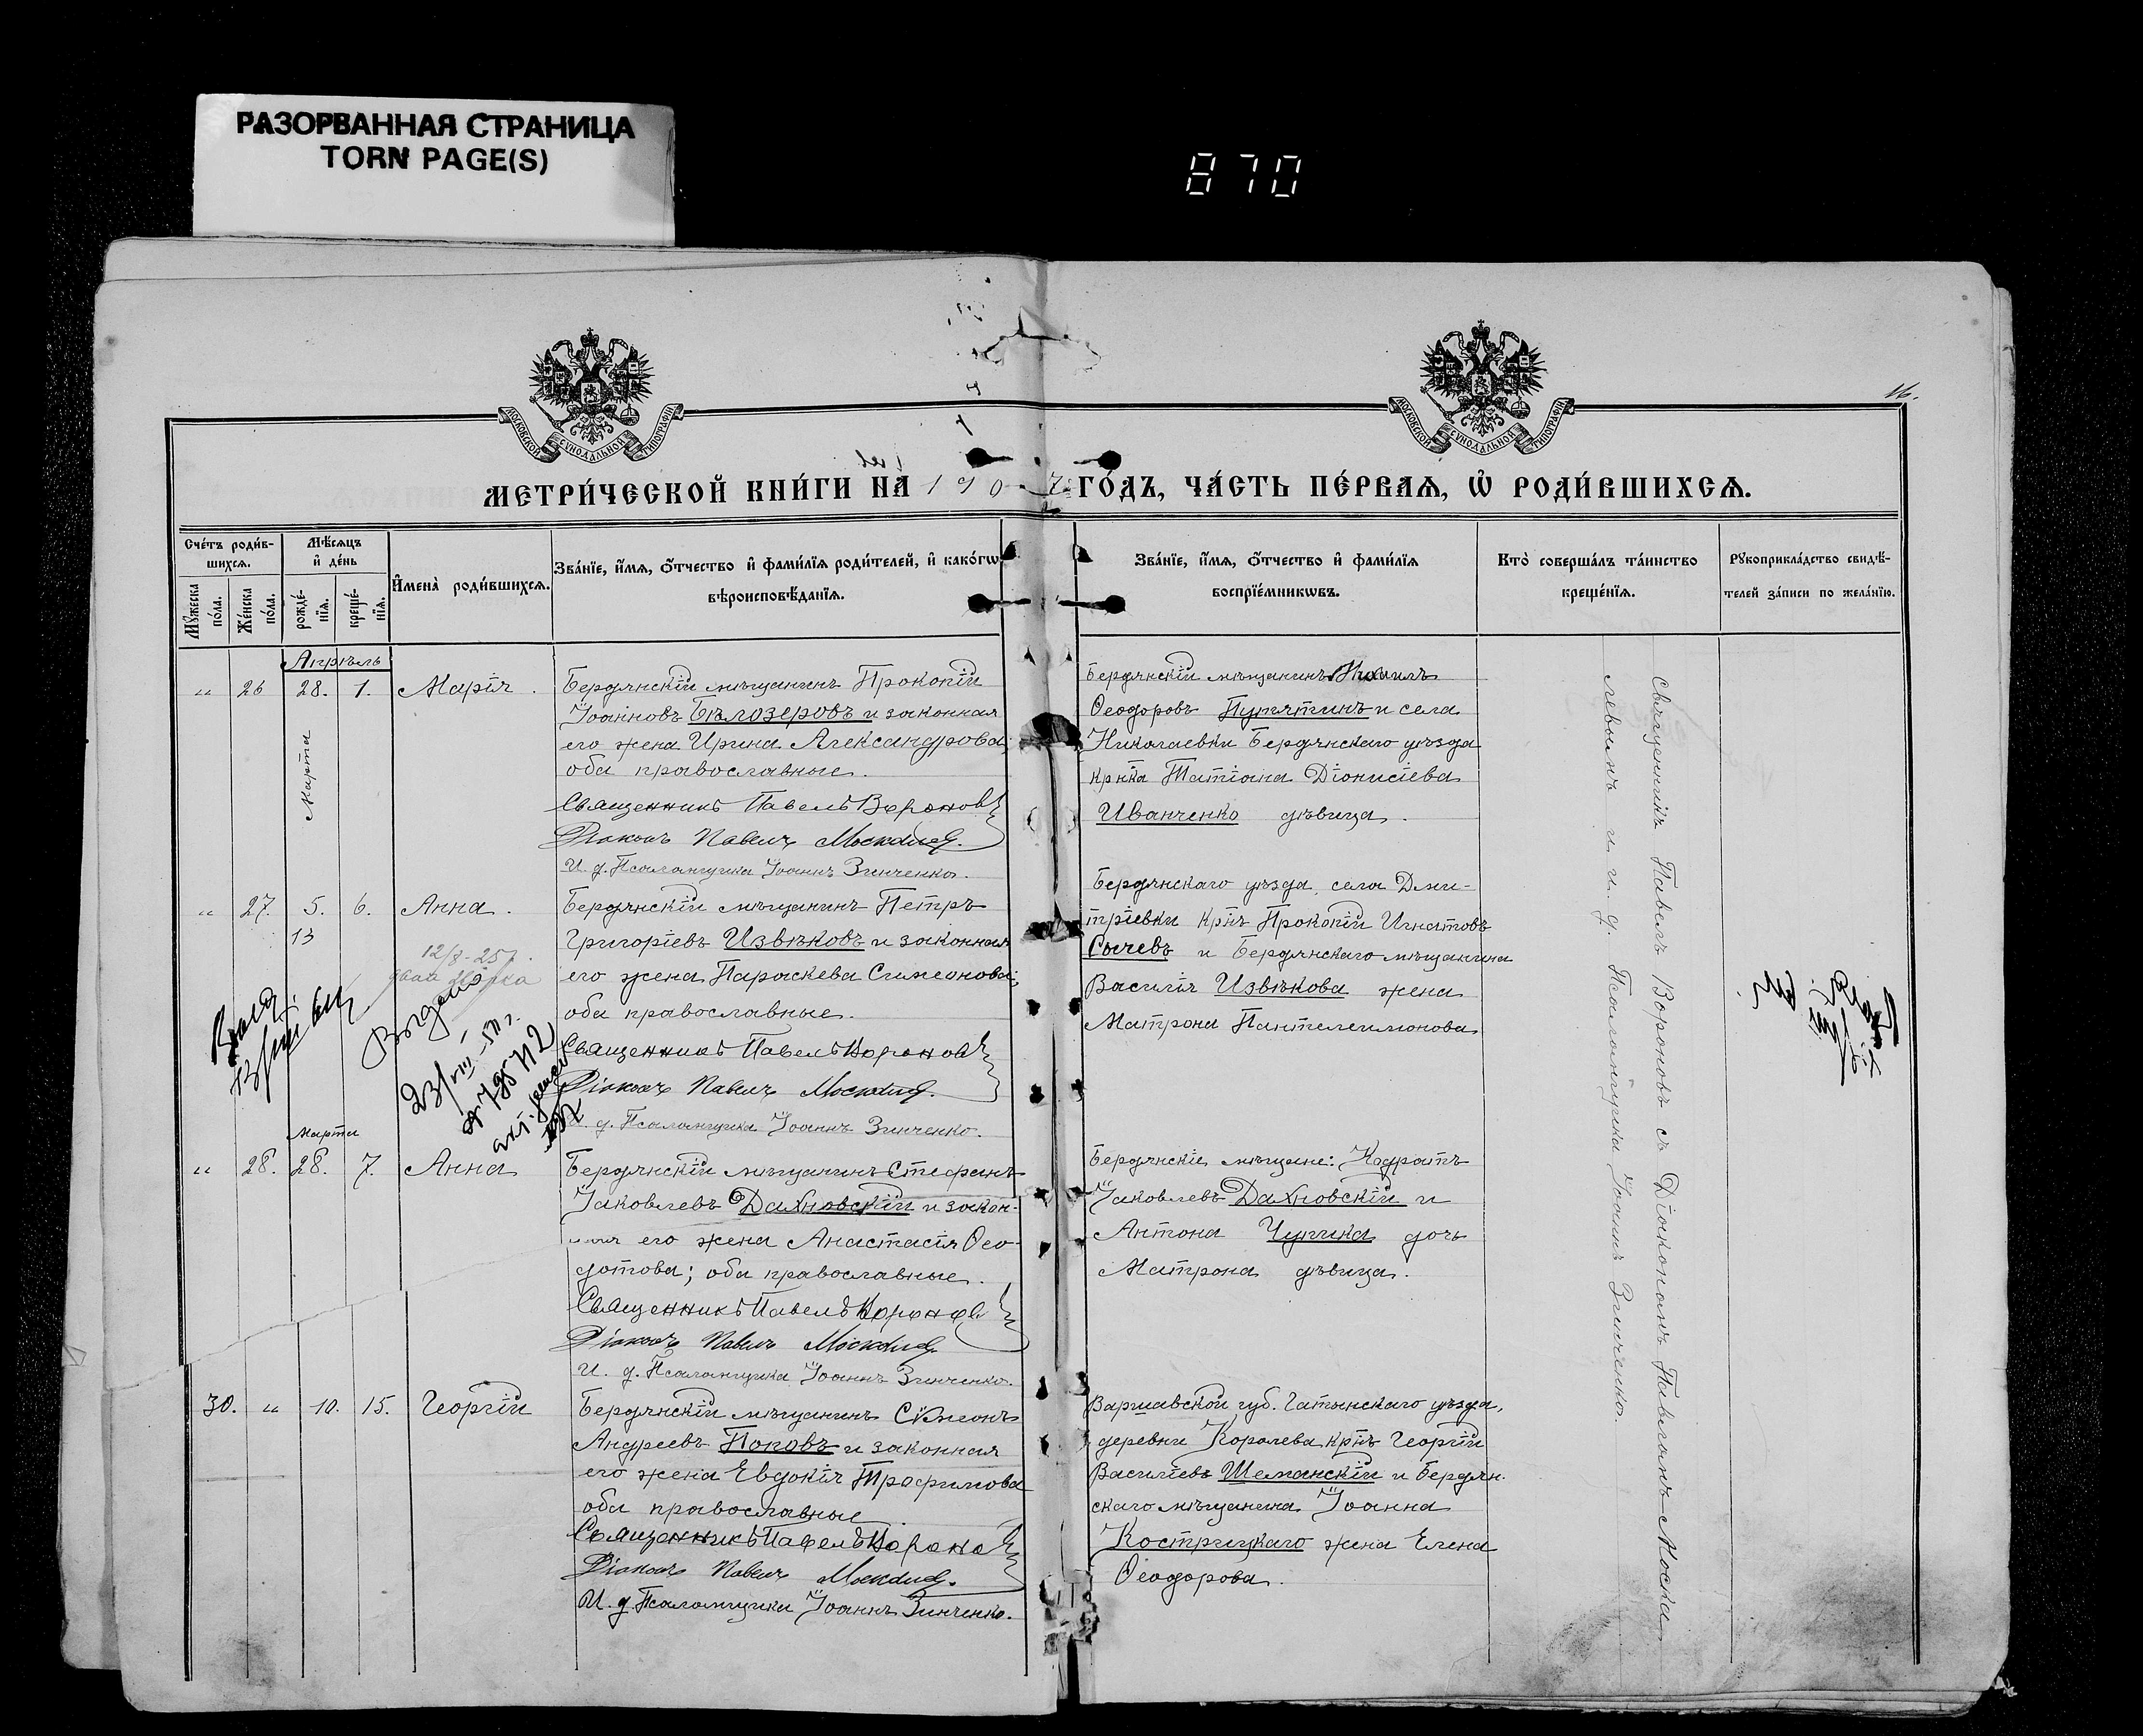 РАЗОРВАННАЯ СТРАНИЦА
TORN PAGE(S)
870
16.
МОСКОВСКОЙ СѴНОДАЛЬНОЙ ТИПОГРАФІИ
МОСКОВСКОЙ СѴНОДАЛЬНОЙ ТИПОГРАФІИ
МЕТРИ́ЧЕСКОЙ КНИ́ГИ НА 1907 ГО́ДЪ, ЧА́СТЬ ПЕ́РВАѦ, Ѡ҆ РОДИ́ВШИХСѦ.
Сче́тъ роди́в-
шихсѧ.
Мꙋ́жеска по́ла.
Же́нска по́ла.
Мѣ́сѧцъ
и҆ де́нь
рожде́-
нїѧ.
креще́-
нїѧ.
И҆мена̀ роди́вшихсѧ.
Зва́нїе, и҆́мѧ, ѻ҆́тчество и҆ фами́лїѧ роди́телей, и҆ како́гѡ
вѣроисповѣ́данїѧ.
Зва́нїе, и҆́мѧ, ѻ҆́тчество и҆ фами́лїѧ
воспрїе́мникѡвъ.
Кто̀ соверша́лъ та́инство
креще́нїѧ.
Рꙋкоприкла́дство свидѣ́-
телей за́писи по жела́нїю.
Апрѣль
„ 26 28. 1. Марія.
Марта
Бердянскій мѣщанинъ Прокопій
Іоанновъ Бѣлозеровъ и законная
его жена Ирина Александрова;
оба православные.
Священникъ Павелъ Вороновъ
Діаконъ Павелъ Москалевъ.
И. д. Псаломщика Іоаннъ Зинченко.
Бердянскій мѣщанинъ
Ѳеодоровъ Пупятинъ и села
Николаевки Бердянскаго уѣзда
крнка Татіана Діонисіева
Иванченко дѣвица.
„ 27. 5. 6. Анна.
13
12/8-257.
Бердянскій мѣщанинъ Петръ
Григоріевъ Извѣковъ и законная
его жена Параскева Симеонова;
оба православные.
Священникъ Павелъ Вороновъ
Діаконъ Павелъ Москалевъ.
И. д. Псаломщика Іоаннъ Зинченко.
Бердянскаго уѣзда, села Дми-
тріевки крнъ Прокопій Игнатовъ
Сычевъ и Бердянскаго мѣщанина
Василія Извѣкова жена
Матрона Пантелеимонова
Выдано
Марта
„ 28. 28. 7. Анна
Бердянскій мѣщанинъ Стефанъ
Іаковлевъ Дахновскій и закон-
ная его жена Анастасія Ѳео-
дотова; оба православные.
Священникъ Павелъ Вороновъ
Діаконъ Павелъ Москалевъ.
И. д. Псаломщика Іоаннъ Зинченко.
Бердянскіе мѣщане: Кодратъ
Іаковлевъ Дахновскій и
Антона Чупика дочь
Матрона дѣвица.
30. „ 10. 15. Георгій
Бердянскій мѣщанинъ Сѵмеонъ
Андреевъ Поповъ и законная
его жена Евдокія Трофимова
оба православные
Священникъ Павелъ Вороновъ
Діаконъ Павелъ Москалевъ.
И. д. Псаломщика Іоаннъ Зинченко.
Варшавской губ. Гатынскаго уѣзда,
деревни Королева крнъ Георгій
Василіевъ Шеманскій и Бердян-
скаго мѣщанина Іоанна
Кострицкаго жена Елена
Ѳеодорова.
Священникъ Павелъ Вороновъ съ Діакономъ Павломъ Моска-
левымъ и и. д. Псаломщика Іоаннъ Зинченко.